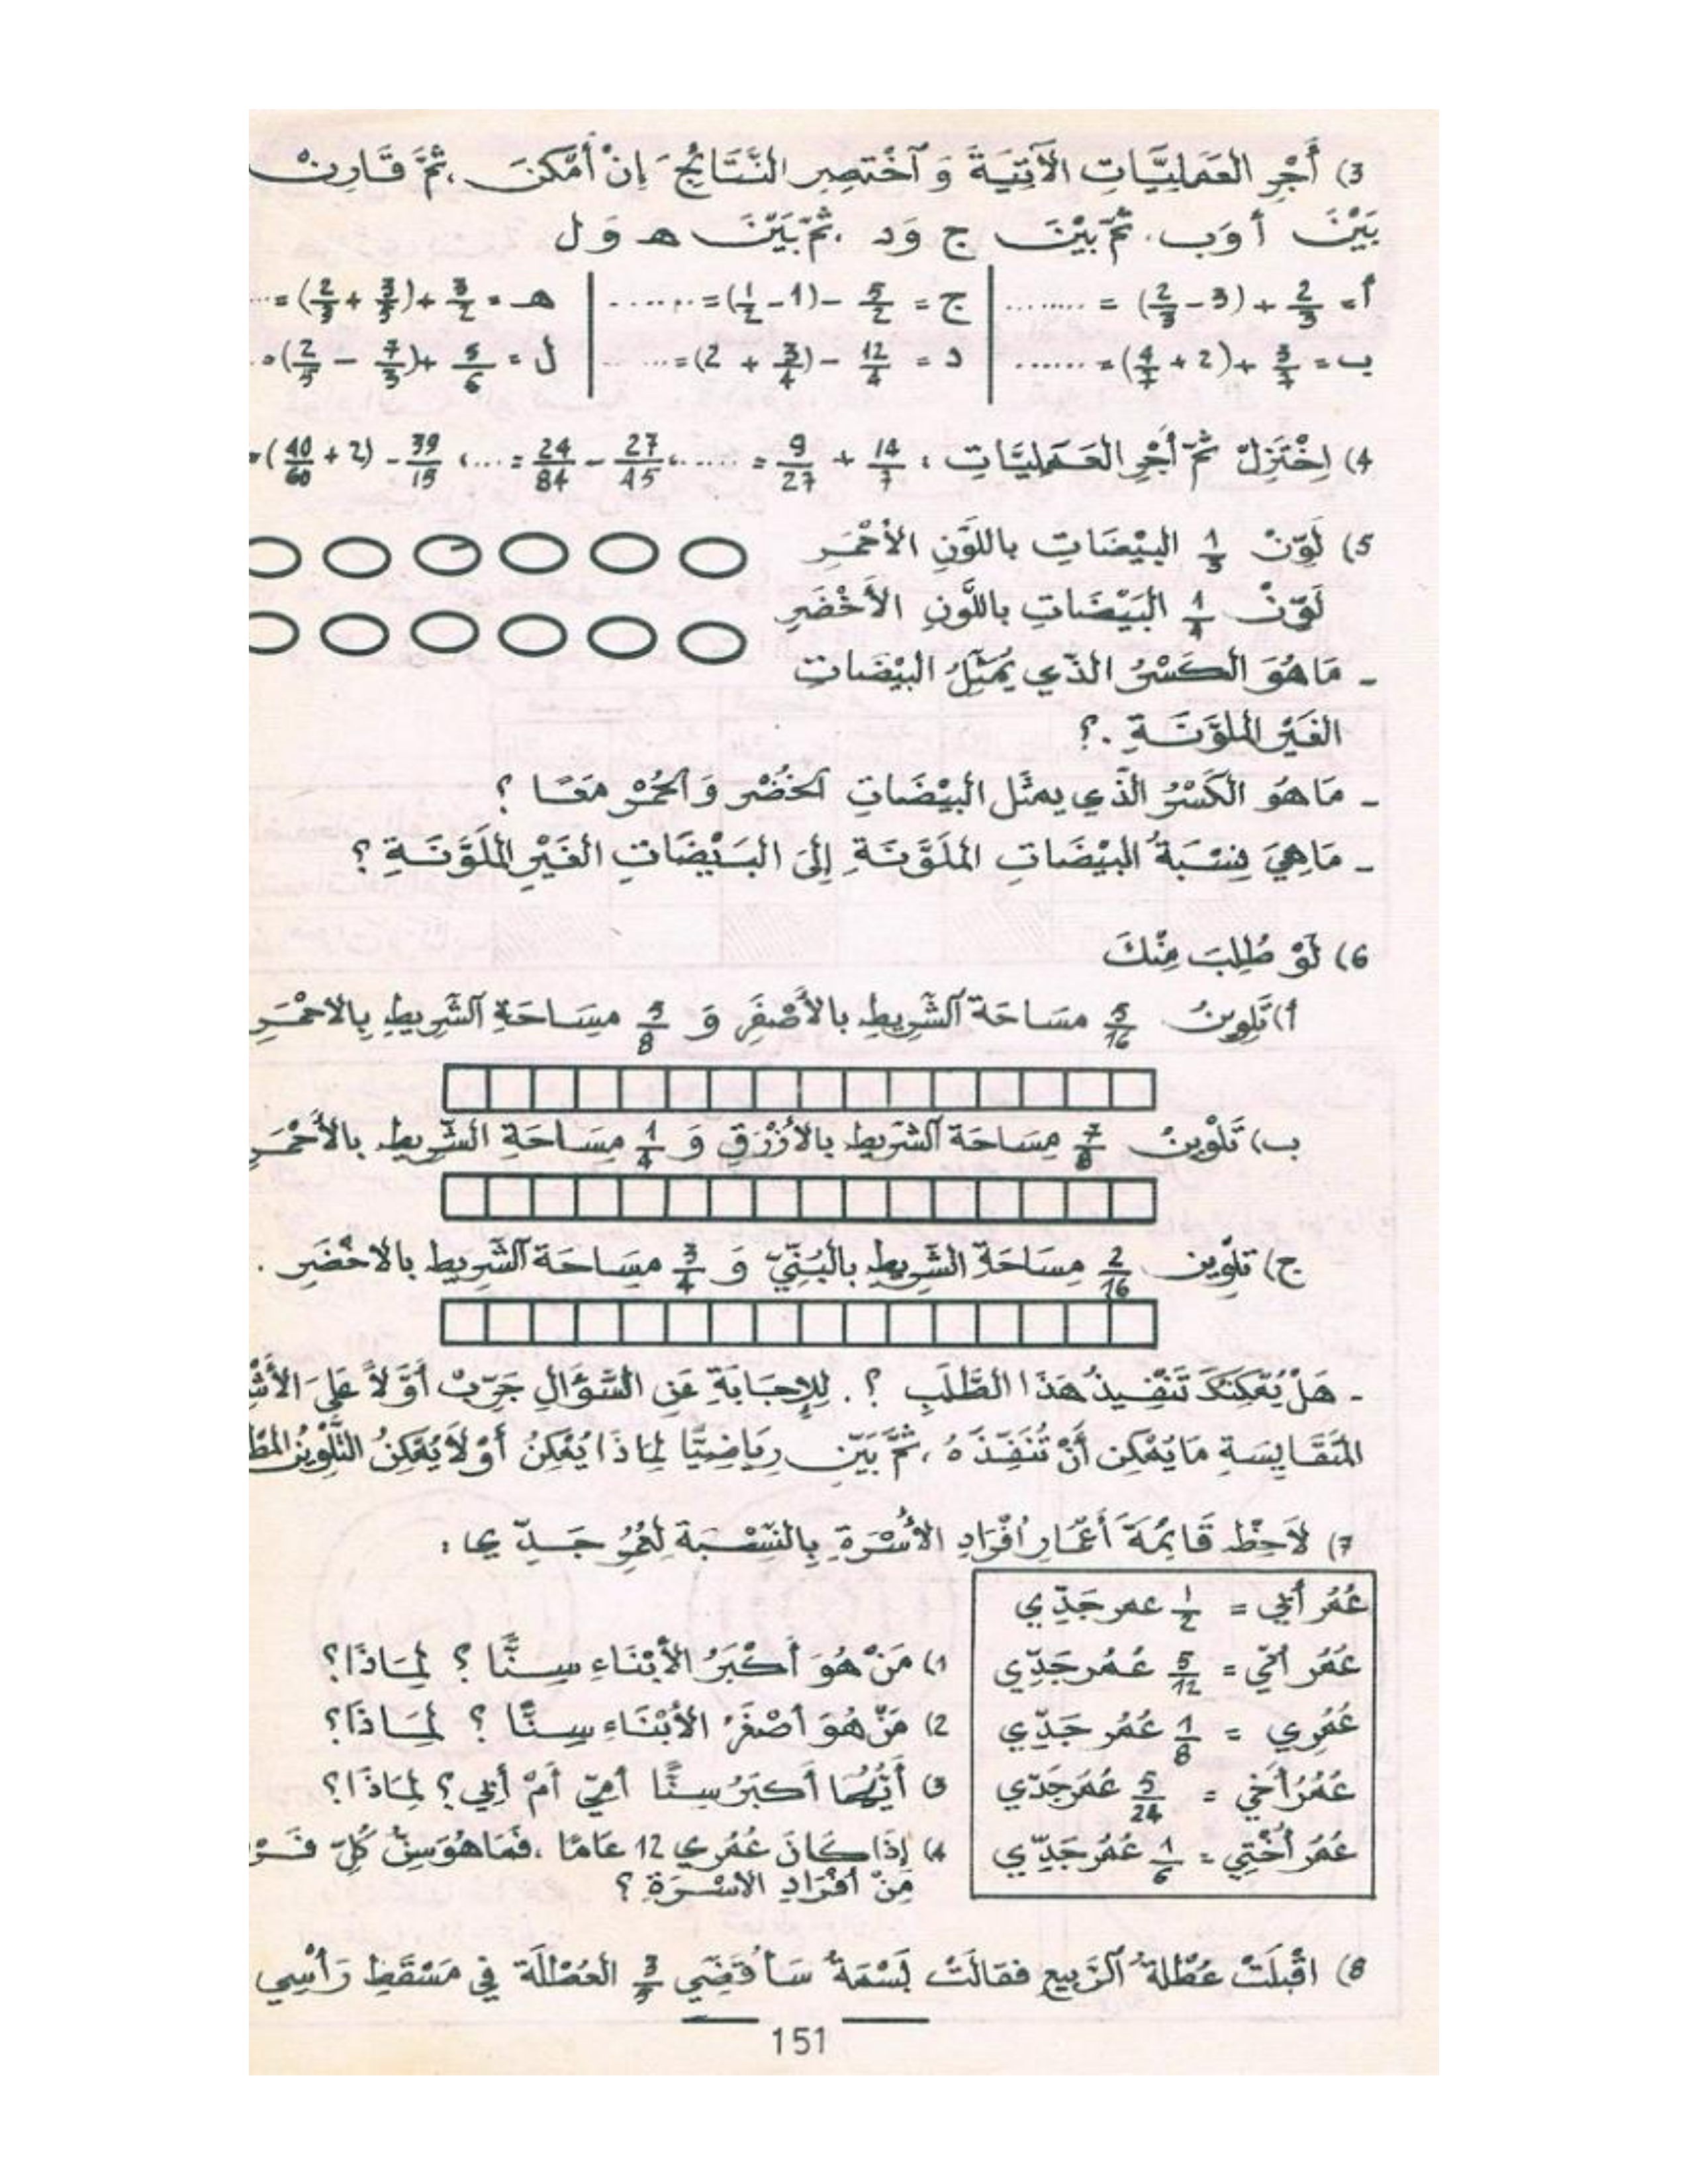 3) أَجْرِ العَمَلِيَّاتِ الآتِيَةَ وَ ٱخْتَصِرِ النَّتَائِجَ إِنْ أَمْكَنَ ، ثُمَّ قَارِنْ
بَيْنَ أ وَب . ثُمَّ بَيْنَ ج وَد ، ثُمَّ بَيْنَ هـ وَ ل
أ = 2/3 + (3 - 2/3) = ........ | ج = 5/2 - (1 - 1/2) = ........ | هـ = 3/2 + (3/5 + 2/3) = ...
ب = 3/7 + (2 + 4/7) = ...... | د = 12/4 - (3/4 + 2) = ..... | ل = 5/6 + (7/3 - 2/5) = .
4) اِخْتَزِلْ ثُمَّ أَجْرِ العَمَلِيَّاتِ : 14/7 + 9/27 = ...... ، 27/45 - 24/84 = ... ، 39/15 - (2 + 40/60) =
5) لَوِّنْ 1/3 البَيْضَاتِ باللَّوْنِ الأَحْمَرِ
لَوِّنْ 1/4 البَيْضَاتِ باللَّوْنِ الأَخْضَرِ
- مَا هُوَ الكَسْرُ الذّي يُمَثِّلُ البَيْضَاتِ
الغَيْرَ المُلَوَّنَةِ .؟
- مَا هُوَ الكَسْرُ الذّي يمثّل البَيْضَاتِ الخُضْرِ وَ الحُمْرِ مَعًا ؟
- مَا هِيَ نِسْبَةُ البَيْضَاتِ المُلَوَّنَةِ إِلَى البَيْضَاتِ الغَيْرِ المُلَوَّنَةِ ؟
6) لَوْ طُلِبَ مِنْكَ
أ) تَلْوِينُ 5/16 مسَاحَة ٱلشَّرِيطِ بالأَصْفَرِ وَ 5/8 مِسَاحَةِ ٱلشَّرِيطِ بِالاحْمَرِ
ب) تَلْوِينُ 7/8 مِسَاحَة ٱلشَّرِيط بالأَزْرَقِ وَ 1/4 مِسَاحَةِ الشَّرِيطِ بالأَحْمَرِ
ج) تلْوِين 2/16 مِسَاحَة الشَّرِيطِ بالبُنِّيّ وَ 3/4 مِسَاحَة ٱلشَّرِيط بالاخْضَرِ .
- هَلْ يُمْكِنُكَ تَنْفِيذُ هَذَا الطَّلَبِ ؟ . لِلإِجَابَةِ عَنِ السُّؤَالِ جَرِّبْ أَوَّلاً عَلَى
المُتَقَايِسَةِ مَا يُمْكِن أَنْ تُنَفِّذَهُ ، ثُمَّ بَيِّن رِيَاضِيًّا لِمَاذَا يُمْكِنُ أَوْ لَا يُمْكِنُ التَّلْوِينُ
7) لاَحِظْ قَائِمَةَ أَعْمَارِ أفْرَادِ الأُسْرَةِ بِالنِّسْبَةِ لِعُمُرِ جَدِّي :
عُمُر أَبِي = 1/2 عمر جَدِّي
عُمُر أُمِّي = 5/12 عُمُر جَدِّي
عُمُرِي = 1/8 عُمُر جَدِّي
عُمُرُ أَخِي = 5/24 عُمُر جَدِّي
عُمُر أُخْتِي = 1/6 عُمُر جَدِّي
1) مَنْ هُوَ أَكْبَرُ الأَبْنَاءِ سِنًّا ؟ لِمَاذَا؟
2) مَنْ هُوَ أصْغَرُ الأَبْنَاءِ سِنًّا ؟ لِمَاذَا؟
3) أَيُّهُمَا أَكبَرُ سِنًّا أُمِّي أَمْ أَبِي ؟ لِمَاذَا ؟
4) إِذَا كَانَ عُمُرِي 12 عَامًا ، فَمَا هُوَ سِنُّ كُلِّ
مِنْ أفْرَادِ الأسْرَةِ ؟
8) اقْبَلَتْ عُطْلَةُ ٱلرَّبِيعِ فقالَتْ بَسْمَةُ سَأَقْضِي 3/5 العُطْلَة فِي مَسْقَطِ رَأْسِي
151